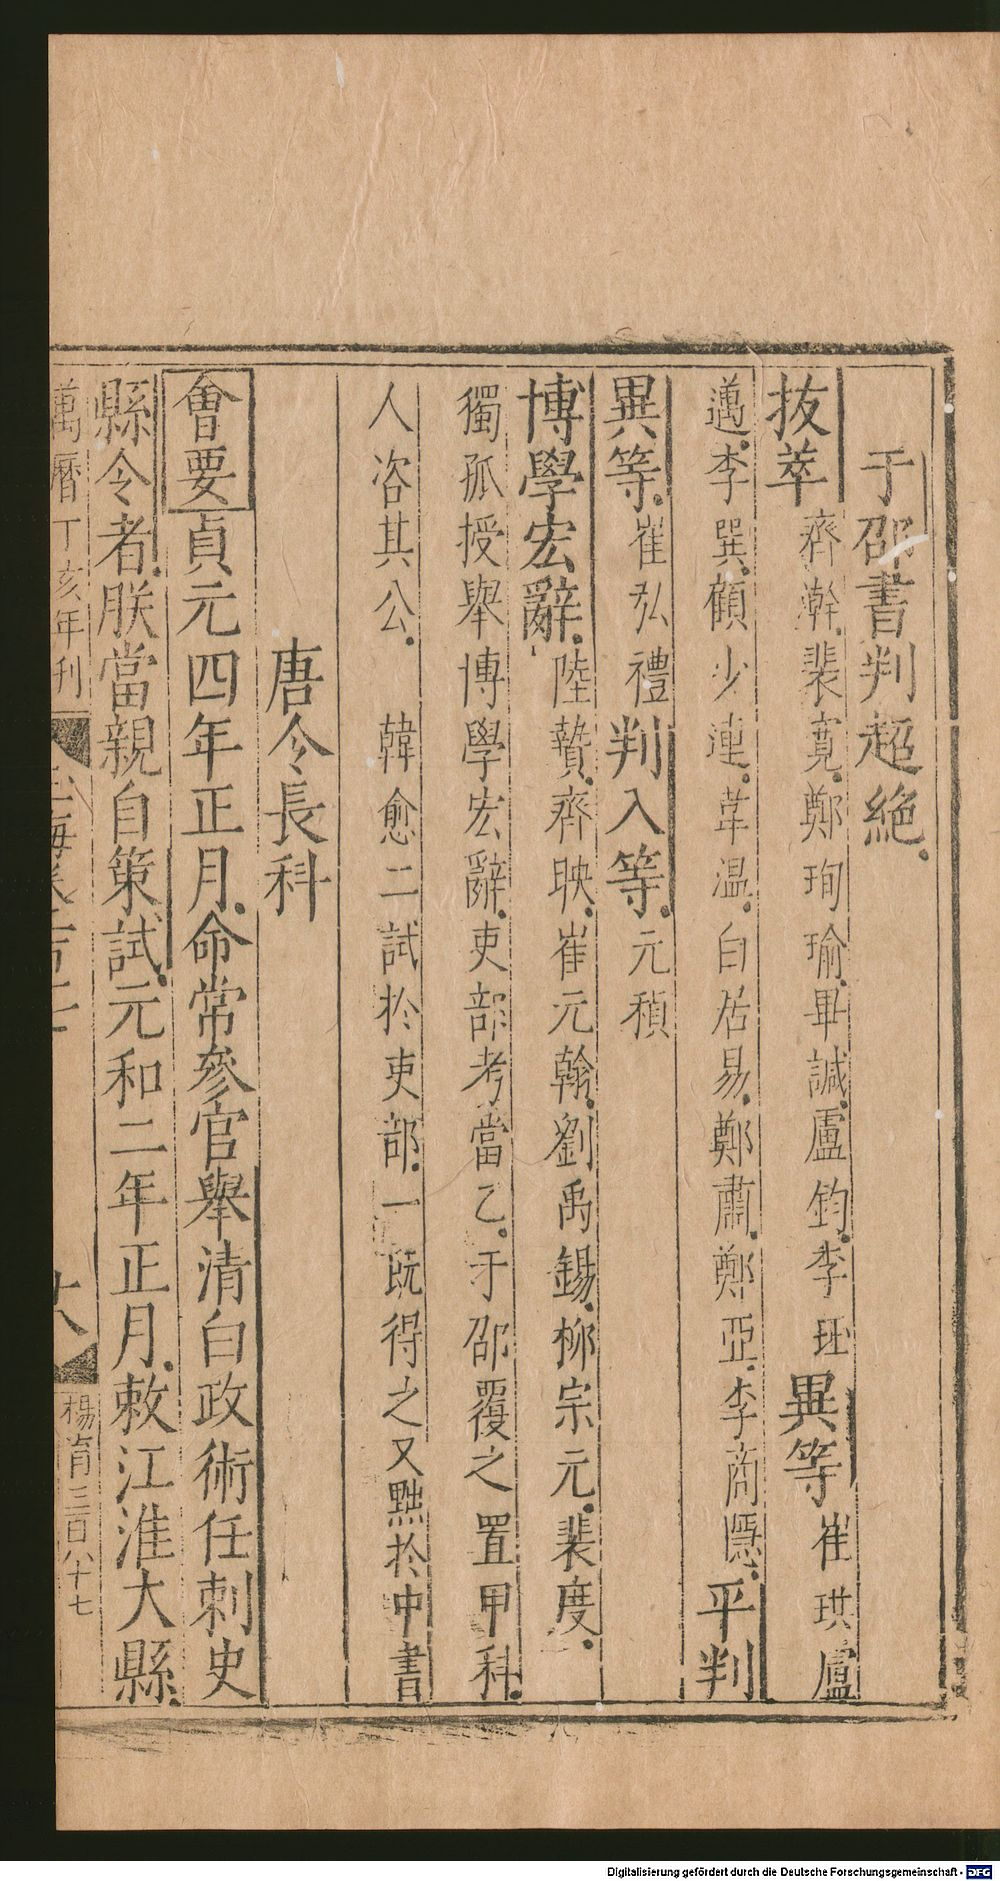 于邵書判超絕
拔萃齊澣裴寬鄭珣瑜畢諴盧鈞李珏異等崔珙盧
邁李巽顧少連韋溫白居易鄭肅鄭亞李商隱平判
異等崔弘禮判入等元稹
博學宏辭陸贄齊映崔元翰劉禹錫柳宗元裴度
獨孤授舉博學宏辭吏部考當乙于邵覆之置甲科
人咨其公 韓愈二試於吏部一既得之又黜於中書
唐令長科
會要貞元四年正月命常參官舉清白政術任刺史
縣令者朕當親自策試元和二年正月敕江淮大縣
萬曆丁亥年刊
十八
楊育三百八十七
Digitalisierung gefördert durch die Deutsche Forschungsgemeinschaft - DFG